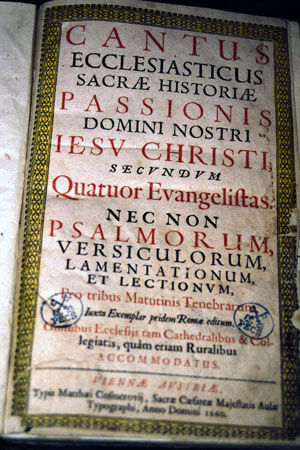 CANTUS
ECCLESIASTICUS
SACRÆ HISTORIÆ
PASSIONIS
DOMINI NOSTRI
IESV CHRISTI,
SECVNDVM
Quatuor Evangelistas.
NEC NON
PSALMORUM,
VERSICULORUM,
LAMENTATIONUM,
ET LECTIONVM,
Pro tribus Matutinis Tenebrarum
Iuxta Exemplar pridem Romæ editum,
Omnibus Ecclesijs tam Cathedralibus & Col-
legiatis, quàm etiam Ruralibus
ACCOMMODATUS.
VIENNÆ AVSTRIÆ,
Typis Matthæi Cosmerovij, Sacræ Cæsareæ Majestatis Aulæ
Typographi, Anno Domini 1660.